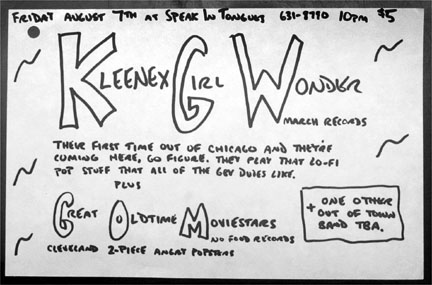 FRIDAY AUGUST 7TH AT SPEAK IN TONGUES 631-8790 10PM $5
KLEENEX GIRL WONDER
MARCH RECORDS
THEIR FIRST TIME OUT OF CHICAGO AND THEY'RE
COMING HERE, GO FIGURE. THEY PLAY THAT LO-FI
POP STUFF THAT ALL OF THE GBV DUDES LIKE.
PLUS
GREAT OLDTIME MOVIESTARS
NO FOOD RECORDS
CLEVELAND 2-PIECE ANGRY POPSTERS
+ ONE OTHER
OUT OF TOWN
BAND TBA.